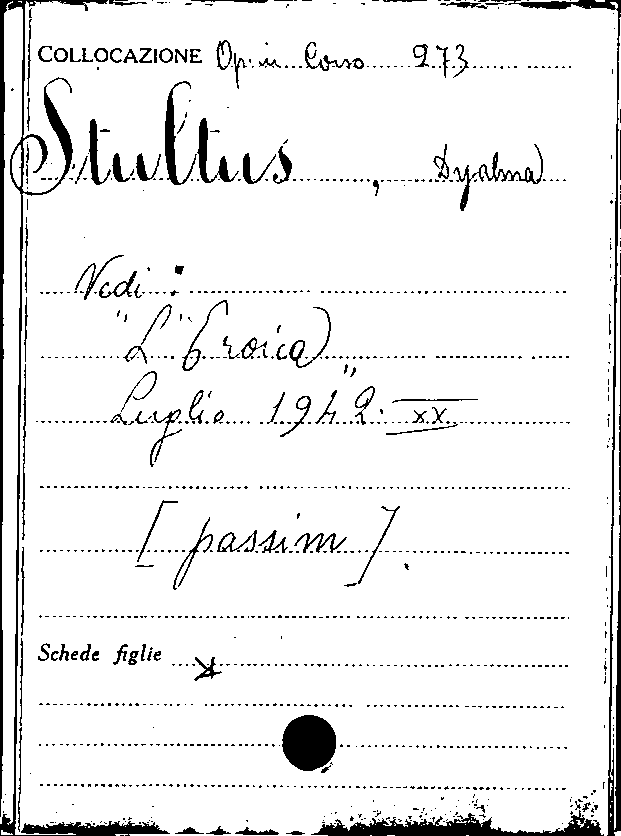 COLLOCAZIONE Op. in Corso 273
Stultus, Dyalma
Vedi:
"L'Eroica"
Luglio 1942. XX
[passim].
Schede figlie